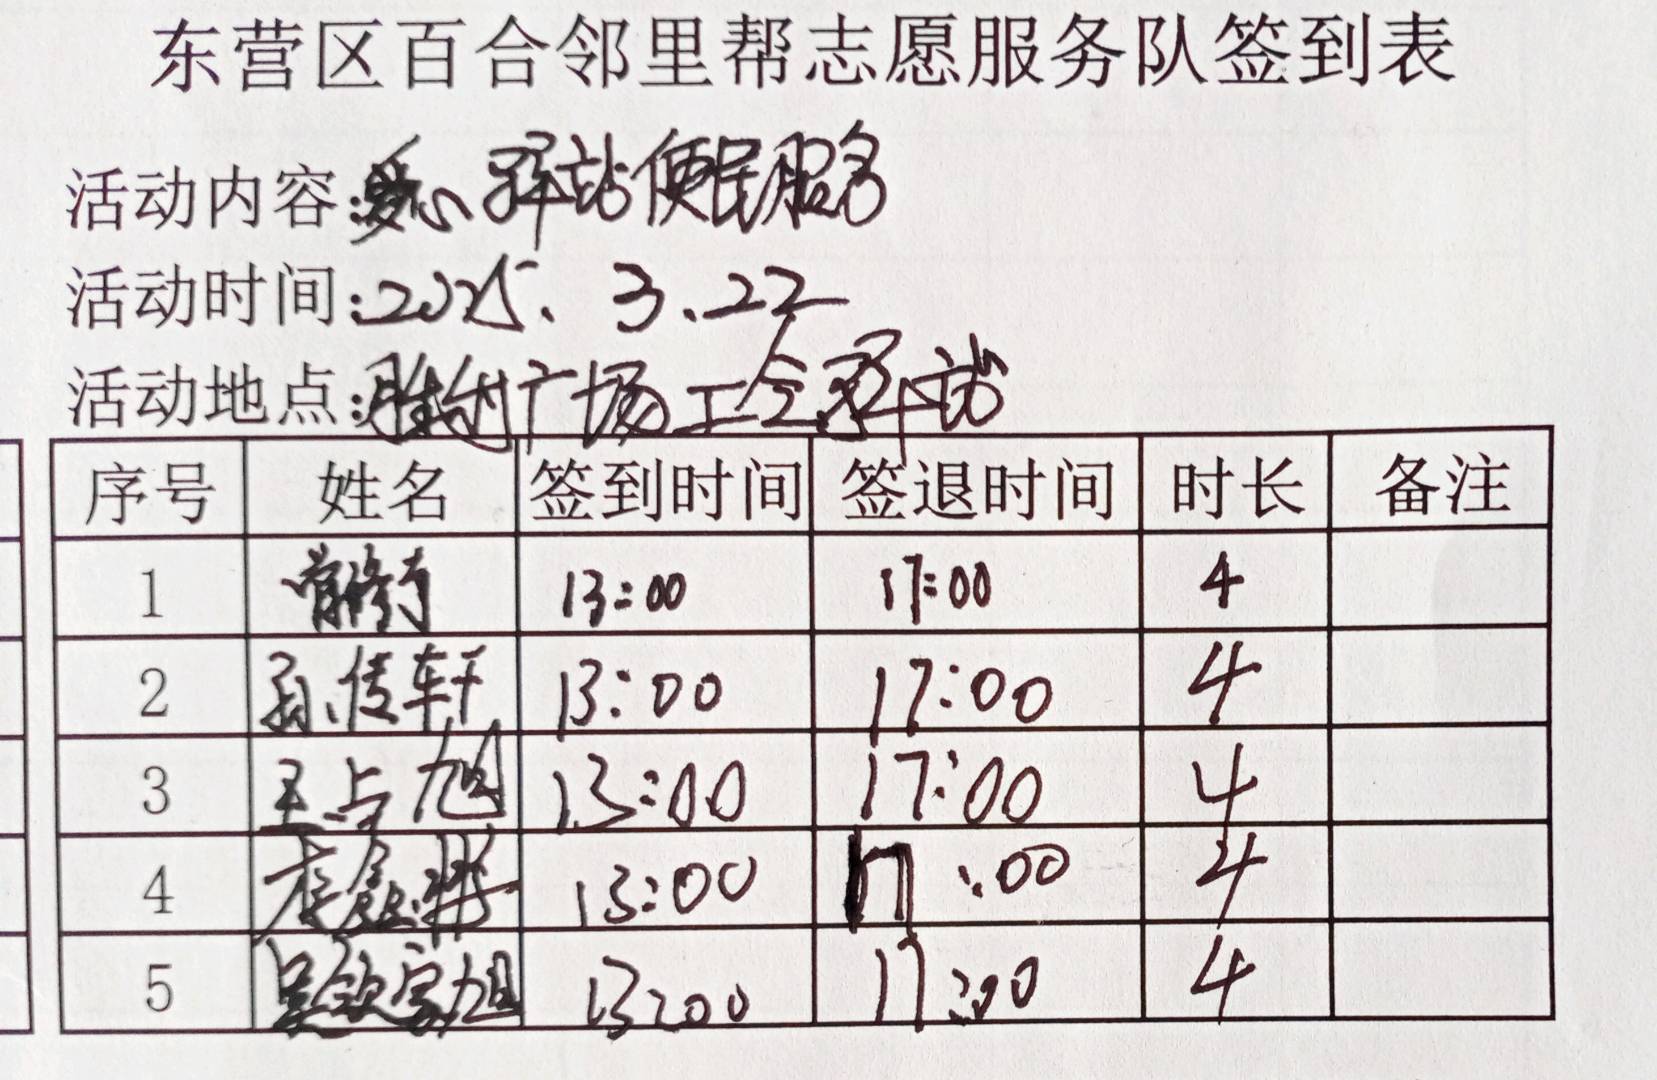 东营区百合邻里帮志愿服务队签到表
活动内容:爱心驿站便民服务
活动时间:2025.3.22
活动地点:胜利广场工会驿站
序号 姓名 签到时间 签退时间 时长 备注
1 13:00 17:00 4
2 孙传轩 13:00 17:00 4
3 王占旭 13:00 17:00 4
4 13:00 17:00 4
5 13:00 17:00 4